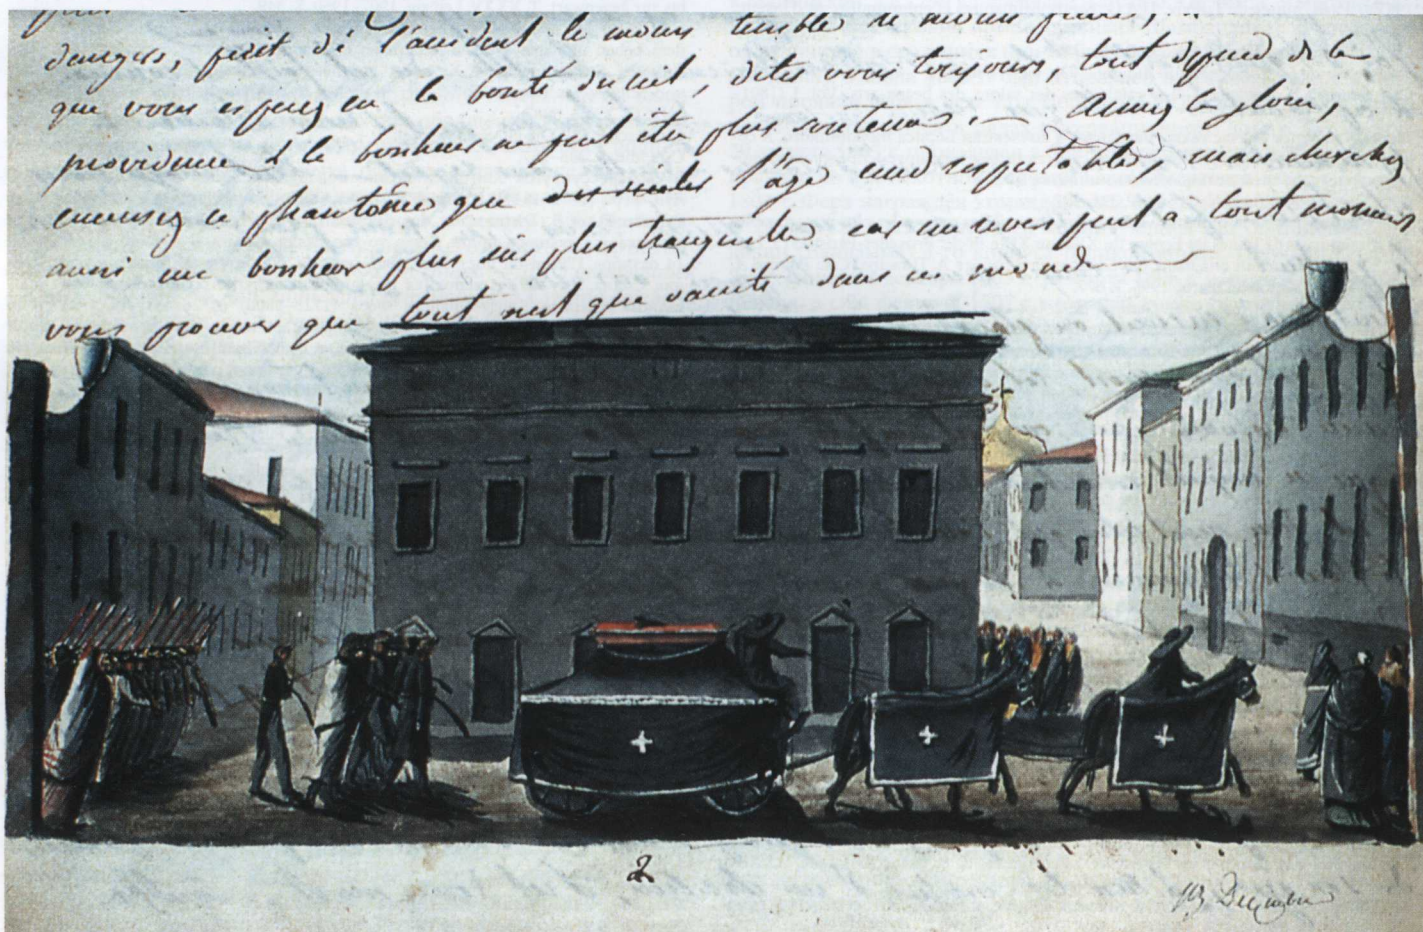 dangers, périt de l'accident le moins terrible le moins
que vous espérez en la bonté du ciel, dites vous toujours, tout dépend de la
providence & le bonheur ne peut être plus soutenu. — Aimez la gloire,
encensez ce phantôme que des siècles l'âge rend respectable, mais cherchez
aussi un bonheur plus sûr plus tranquille car un revers peut a tout moment
vous prouver que tout n'est que vanité dans ce monde
2
13 Decembre